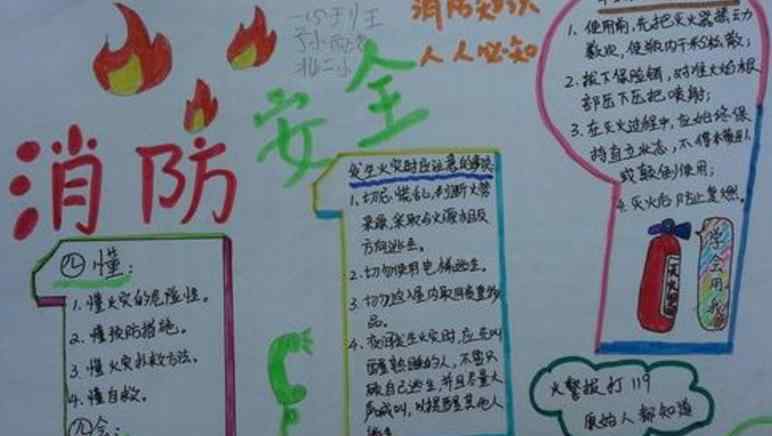 消防知识
人人必知
消防安全
四懂:
1. 懂火灾的危险性。
2. 懂预防措施。
3. 懂火灾扑救方法。
4. 懂自救。
四会:
发生火灾时应注意的事项
1. 切忌慌乱,判断火势
来源,采取与火源相反
方向逃生。
2. 切勿使用电梯逃生。
3. 切勿返入屋内取贵重物
品。
4. 夜间发生火灾时,应先叫
醒熟睡的人,不要只
顾自己逃生,并且尽量大
声喊叫,以提醒其他人
逃生
1. 使用前,先把灭火器摇动
数次,使瓶内干粉松散;
2. 拔下保险销,对准火焰根
部压下压把喷射;
3. 在灭火过程中,应始终保
持直立状态,不得横卧
或颠倒使用;
4. 灭火后防止复燃。
灭火器
学会用我
火警拨打119
原始人都知道